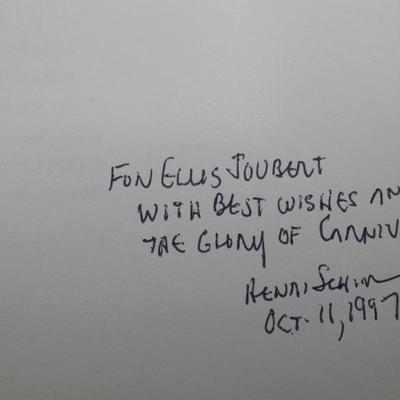 FOR ELLIS JOUBERT
WITH BEST WISHES AN
THE GLORY OF CARNIV
HENRI SCHIN
OCT. 11, 1997